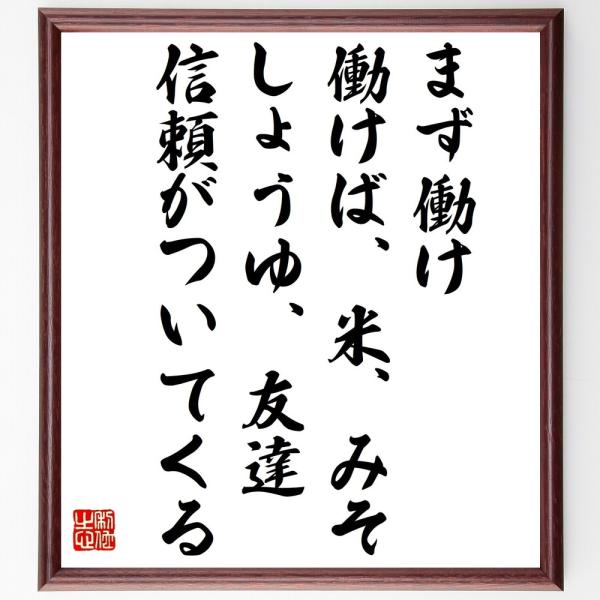 まず働け
働けば、米、みそ
しょうゆ、友達
信頼がついてくる